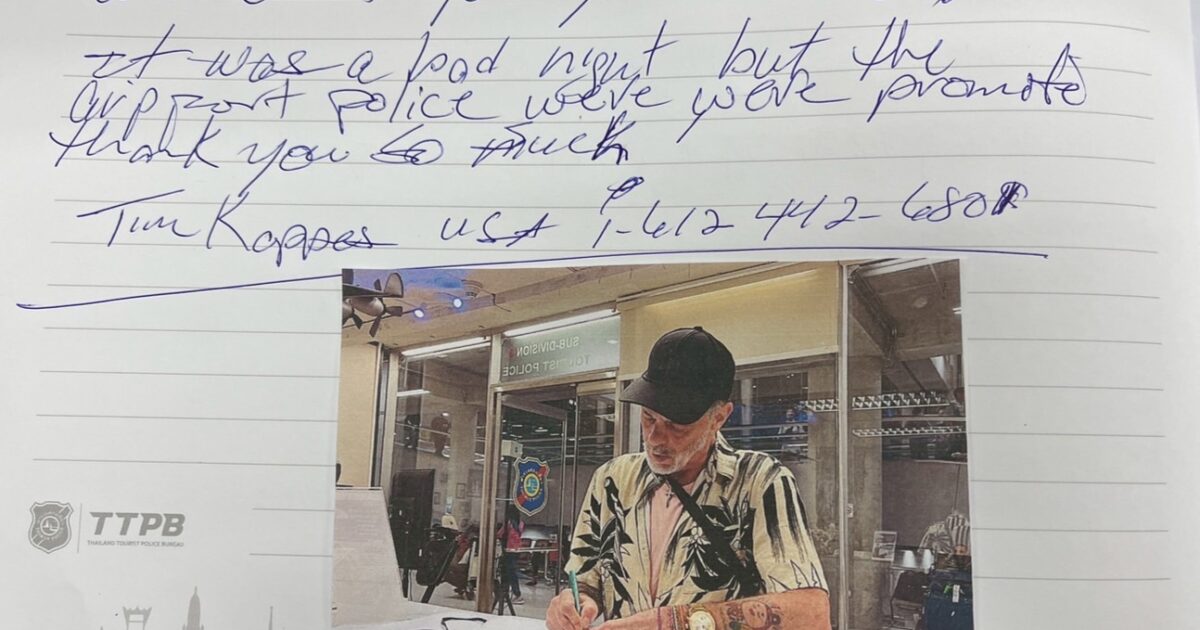 it was a bad night but the
airpport police were were promote
thank you so much
Tim Kappes USA 1-612-442-680
SUB-DIVISION
TOURIST POLICE
TTPB
THAILAND TOURIST POLICE BUREAU